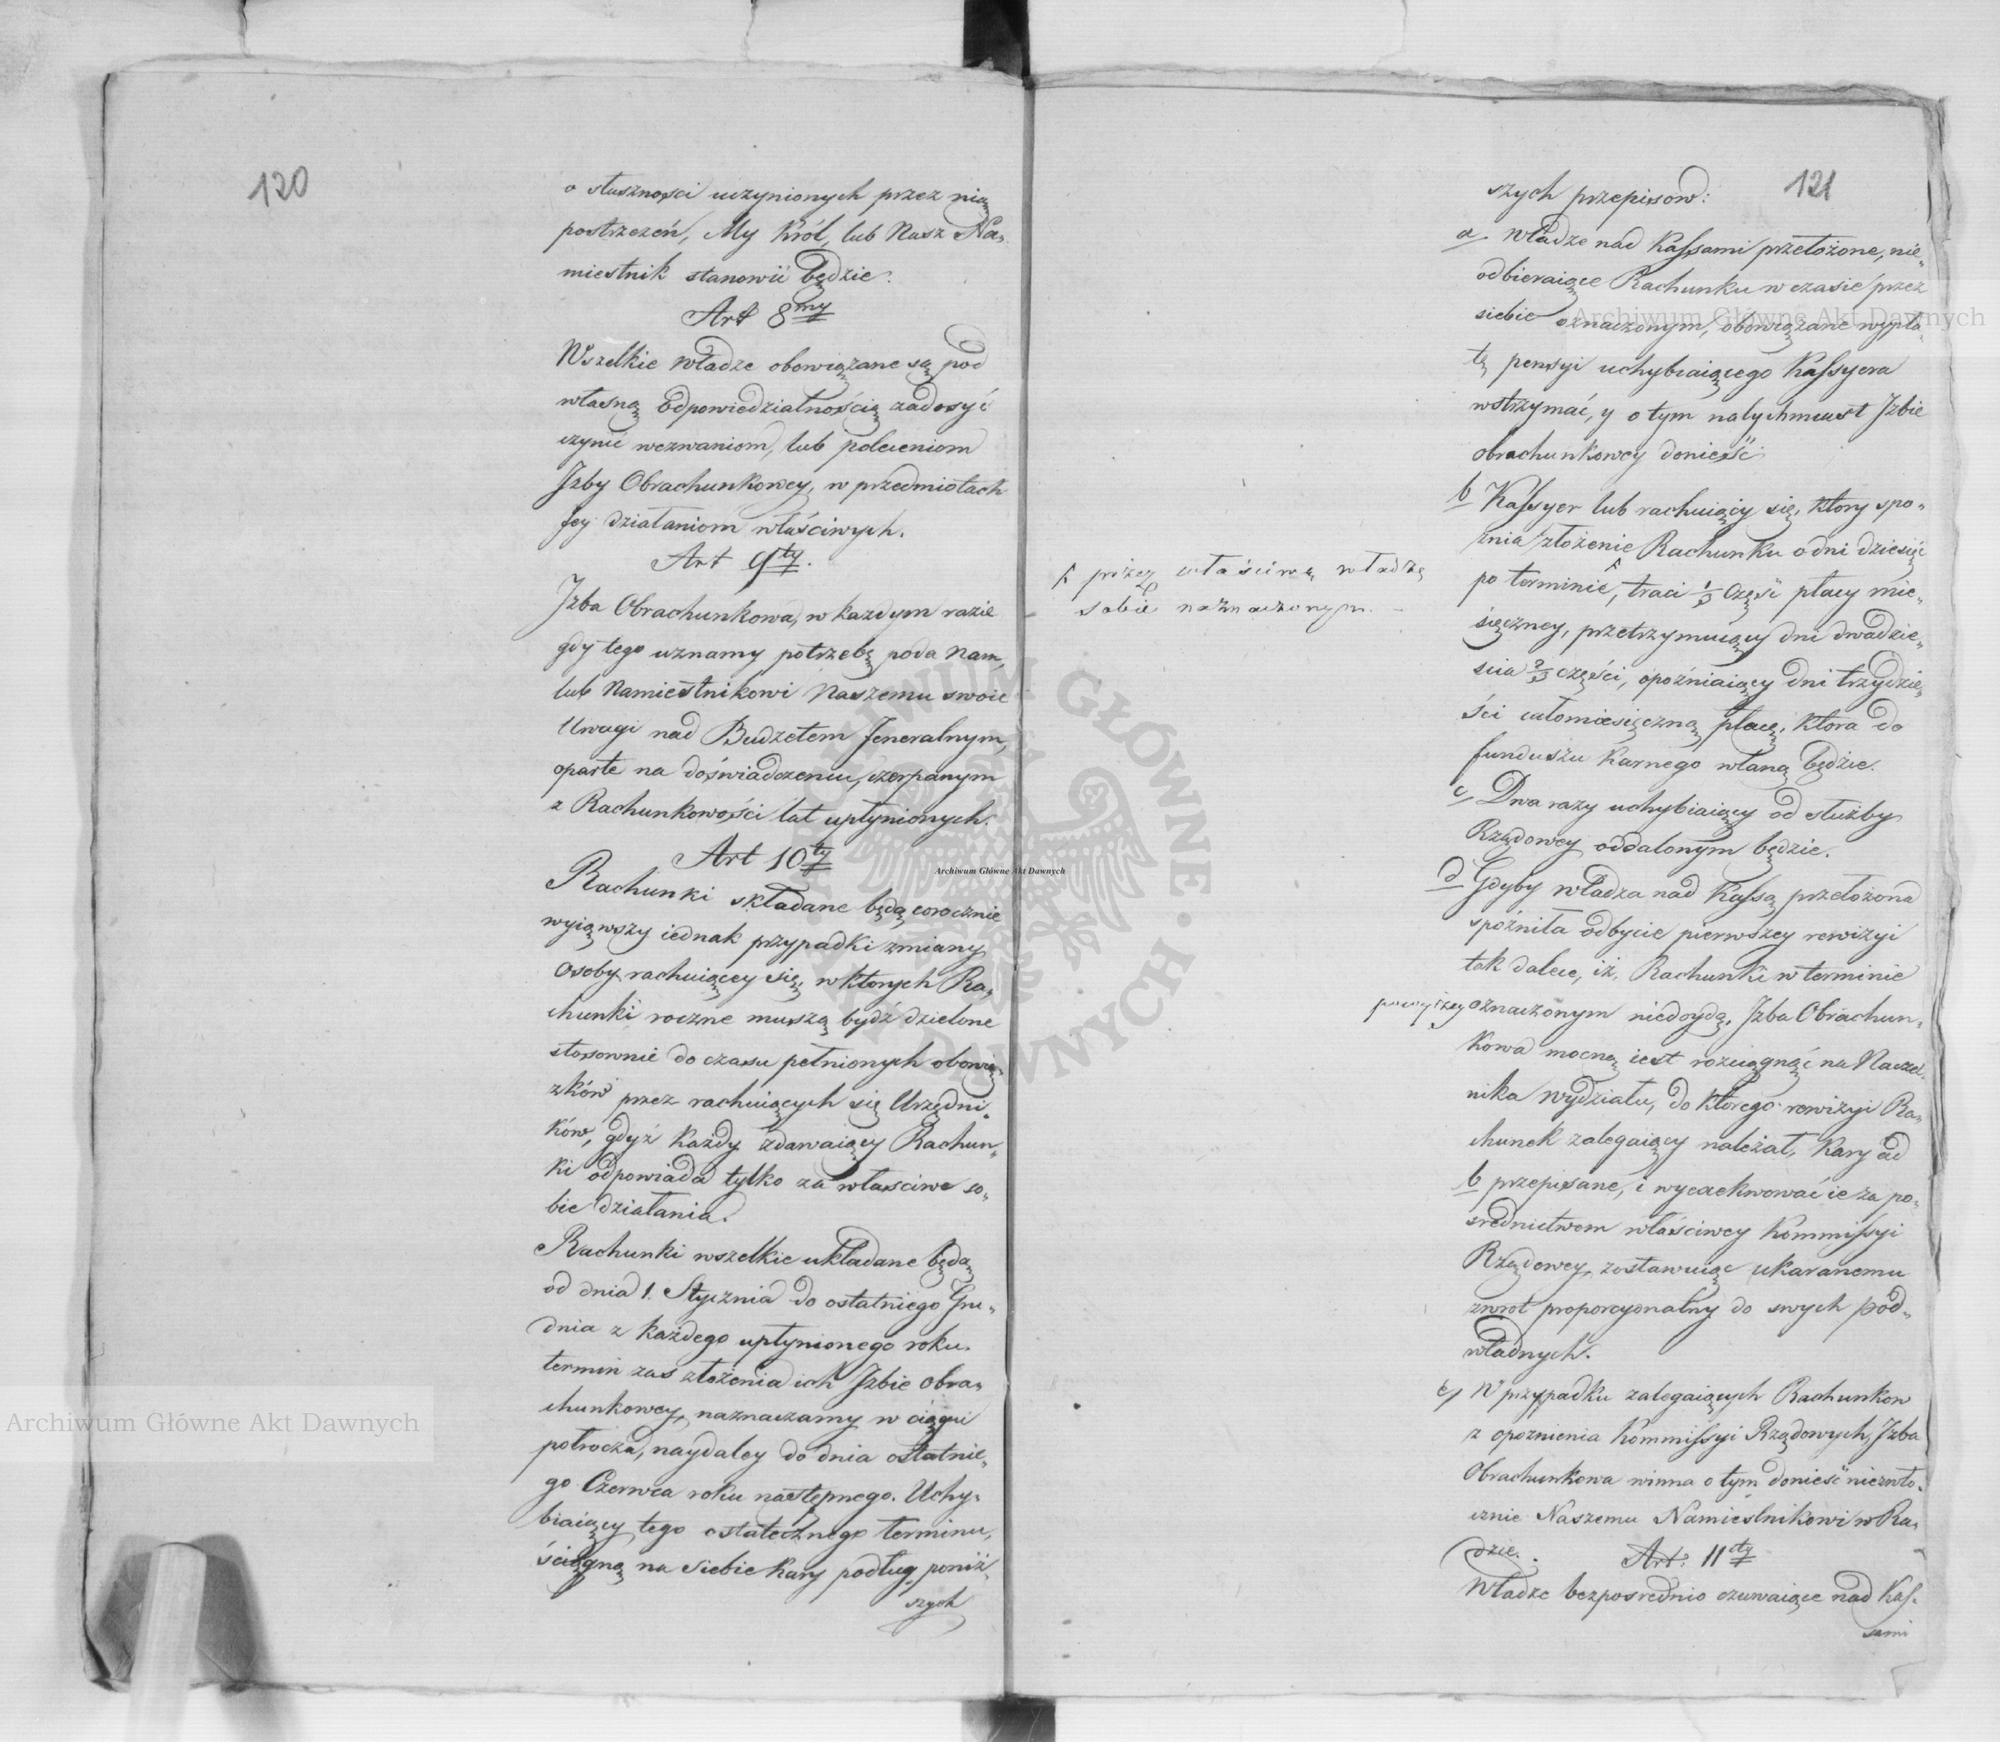 120
o słuszności uczynionych przez nią
postrzeżeń, My Król, lub Nasz Na-
miestnik stanowić będzie.
Art 8my
Wszelkie Władze obowiązane są pod
własną Odpowiedzialnością zadosyć
czynić wezwaniom, lub poleceniom
Jzby Obrachunkowey, w przedmiotach
Jey działaniom właściwych.
Art 9ty.
Jzba Obrachunkowa, w każdym razie
gdy tego uznamy potrzebę poda Nam,
lub Namiestnikowi Naszemu swoie
Uwagi nad Budżetem Jeneralnym,
oparte na doświadczeniu, czerpanym
z Rachunkowości lat upłynionych.
Art 10ty
Rachunki składane będą corocznie
wyiąwszy iednak przypadki zmiany
Osoby rachuiącey się, w których Ra-
chunki roczne muszą bydź dzielone
stosownie do czasu pełnionych obowią-
zków przez rachuiących się Urzędni-
ków, gdyż każdy zdawaiący Rachun-
ki odpowiada tylko za właściwe so-
bie działania.
Rachunki wszelkie układane będą
od dnia 1. Stycznia do ostatniego Gru-
dnia z każdego upłynionego roku.
termin zaś złożenia ich Jzbie Obra-
chunkowey, naznaczamy w ciągu
półrocza, naydaley do dnia ostatnie-
go Czerwca roku następnego. Uchy-
biaiący tego ostatecznego terminu,
ściągną na siebie kary podług poniż-
szych
121
szych przepisow:
a/ Władze nad Kassami przełożone, nie-
odbieraiące Rachunku w czasie przez
siebie oznaczonym, obowiązane wypła-
tę pensyi uchybiaiącego Kassyera
wstrzymać, y o tym natychmiast Jzbie
obrachunkowey donieść.
b Kassyer lub rachuiący się, który spo-
źnia złożenie Rachunku o dni dziesięć
po terminie, traci 1/3 Część płacy mie-
sięczney, przetrzymuiący dni dwadzie-
ścia 2/3 części, opóźniaiący dni trzydzie-
ści całomiesięczną płacę, która do
funduszu karnego wlaną będzie.
przez właściwą władzę
sobie naznaczonym.
c/ Dwa razy uchybiaiący od służby
Rządowey oddalonym będzie.
d Gdyby władza nad Kassą przełożona
spóźniła odbycie pierwszey rewizyi
tak dalece, iż Rachunki w terminie
powyżey oznaczonym niedoydą, Jzba Obrachun-
kowa mocną iest rozciągnąć na Naczel-
nika wydziału, do którego rewizyi Ra-
chunek zalegaiący należał, kary ad
b przepisane, i wyexekwować ie za po-
średnictwem właściwey Kommissyi
Rządowey, zostawuiąc ukaranemu
zwrot proporcyonalny do swych pod-
władnych.
e/ W przypadku zalegaiących Rachunkow
z opoznienia Kommissyi Rządowych, Jzba
Obrachunkowa winna o tym donieść niezwło-
cznie Naszemu Namiestnikowi w Ra-
dzie.
Art: 11sty
Władze bezpośrednio czuwaiące nad Kas-
sami
Archiwum Główne Akt Dawnych
Archiwum Główne Akt Dawnych
Archiwum Główne Akt Dawnych
ARCHIWUM GŁÓWNE AKT DAWNYCH